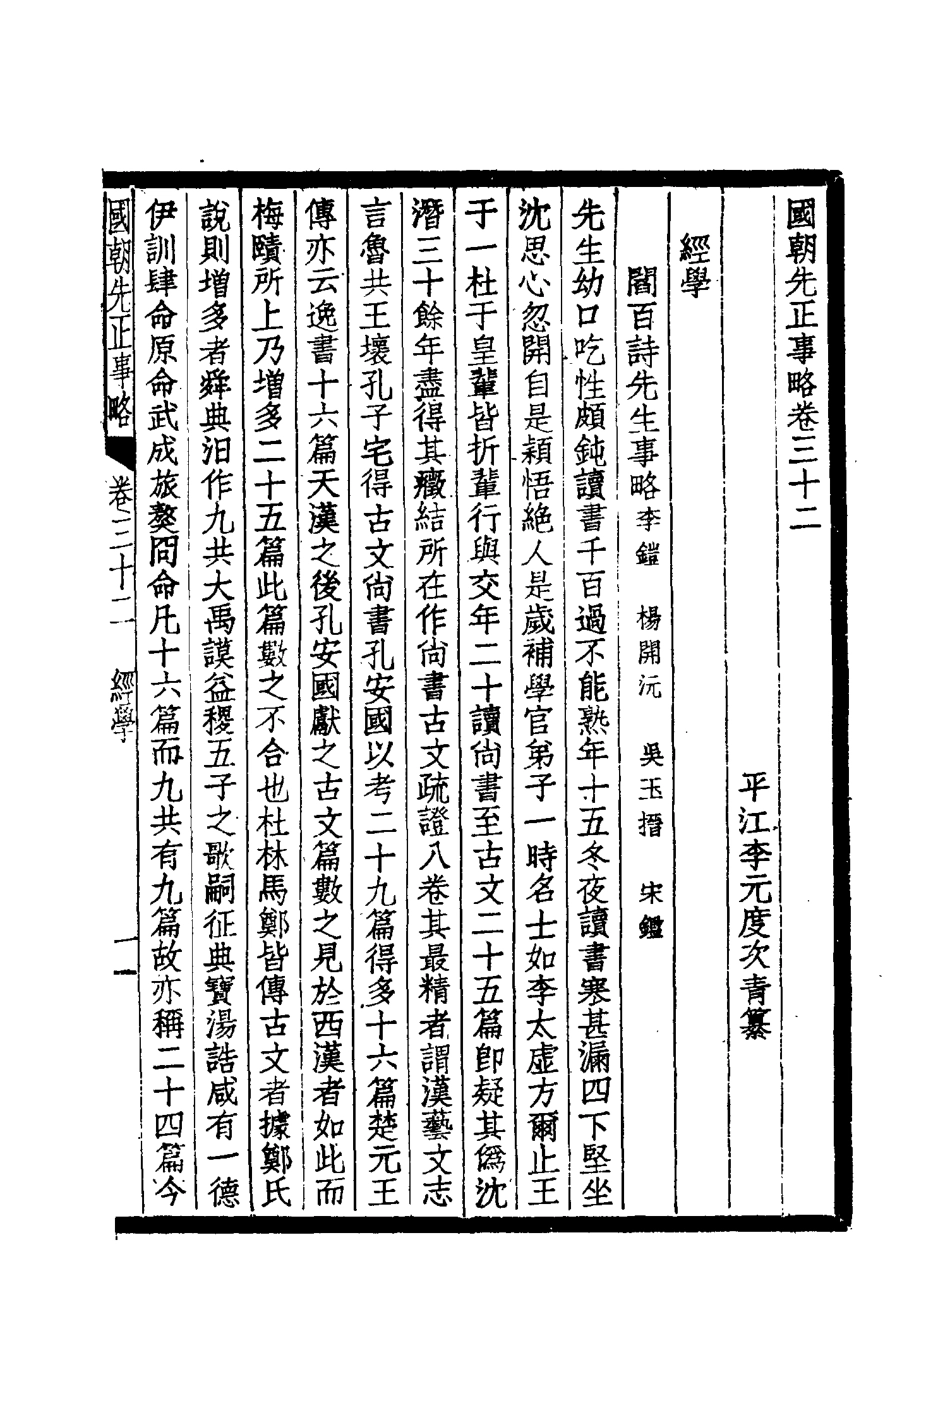 國朝先正事略卷三十二
平江李元度次青纂
經學
閻百詩先生事略李鎧 楊開沅 吳玉搢 宋鑑
先生幼口吃性頗鈍讀書千百過不能熟年十五冬夜讀書寒甚漏四下堅坐
沈思心忽開自是穎悟絕人是歲補學官弟子一時名士如李太虛方爾止王
于一杜于皇輩皆折輩行與交年二十讀尙書至古文二十五篇卽疑其僞沈
潛三十餘年盡得其癥結所在作尙書古文疏證八卷其最精者謂漢藝文志
言魯共王壞孔子宅得古文尙書孔安國以考二十九篇得多十六篇楚元王
傳亦云逸書十六篇天漢之後孔安國獻之古文篇數之見於西漢者如此而
梅賾所上乃增多二十五篇此篇數之不合也杜林馬鄭皆傳古文者據鄭氏
說則增多者舜典汨作九共大禹謨益稷五子之歌嗣征典寶湯誥咸有一德
伊訓肆命原命武成旅獒冏命凡十六篇而九共有九篇故亦稱二十四篇今
國朝先正事略 卷三十二 經學 一